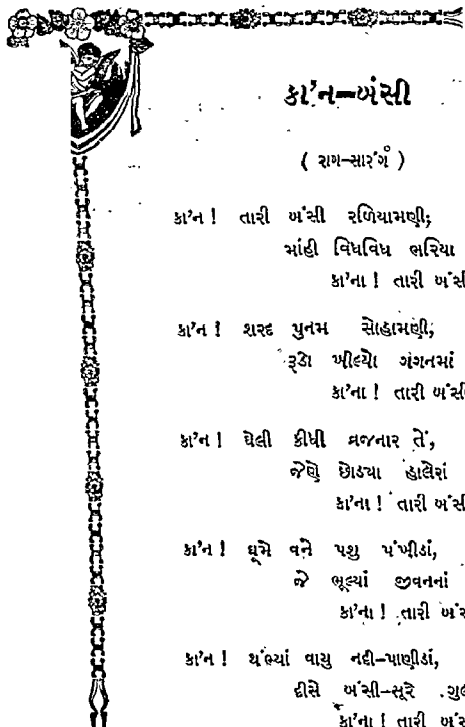 કા’ન–બંસી
( રાગ–સારંગ )
કા’ન ! તારી બંસી રળિયામણી;
માંહી વિધવિધ ભરિયા
કા’ના ! તારી
કા’ન ! શરદ પુનમ સોહામણી;
રૂડો ખીલ્યો ગગનમાં
કા’ના ! તારી
કા’ન ! ઘેલી કીધી વ્રજનાર તેં,
જેણે છોડ્યા હાલેરાં
કા’ના ! તારી
કા’ન ! ઘૂમે વને પશુ પંખીડાં,
જે ભૂલ્યાં જીવનનાં
કા’ના ! તારી
કા’ન ! થંભ્યાં વાયુ નદી–પાણીડાં,
દીસે બંસી–સૂરે
કા’ના ! તારી